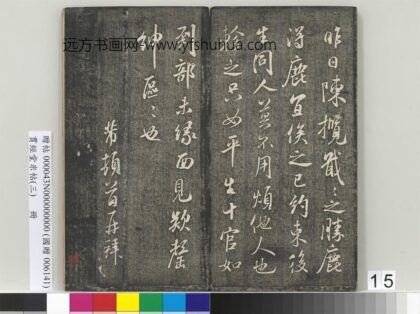 远方书画网 www.yfshuhua.com
昨日陳攬戢戢之勝鹿
得鹿宜俟之已約束後
生同人莫不用煩他人也
輪之只如平生十官如
到部未緣面見欵罄
紳區區也
芾頓首再拜
贈帖 000043N000000000 (國贈 006141)
寶經堂米帖(三) 冊
15